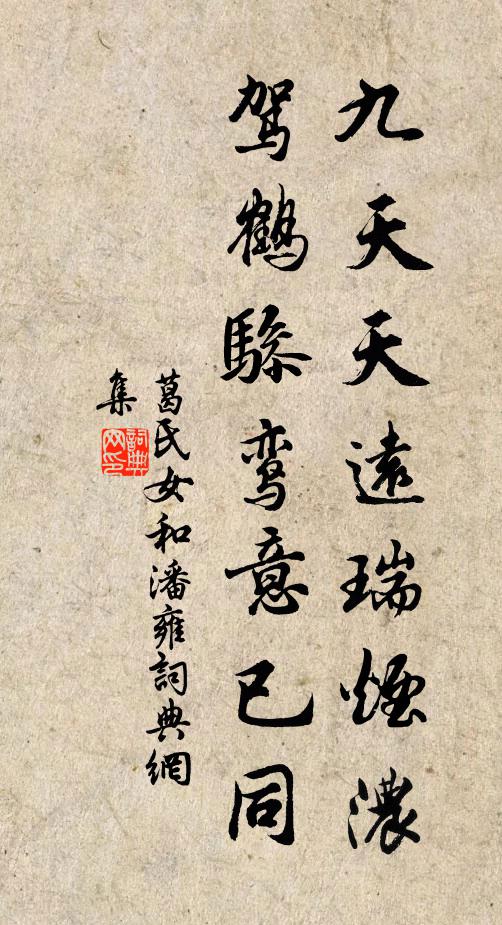 九天天遠瑞煙濃
驾鶴驂鸾意已同
葛氏女和潘雍詞典網
集
詞典
网印